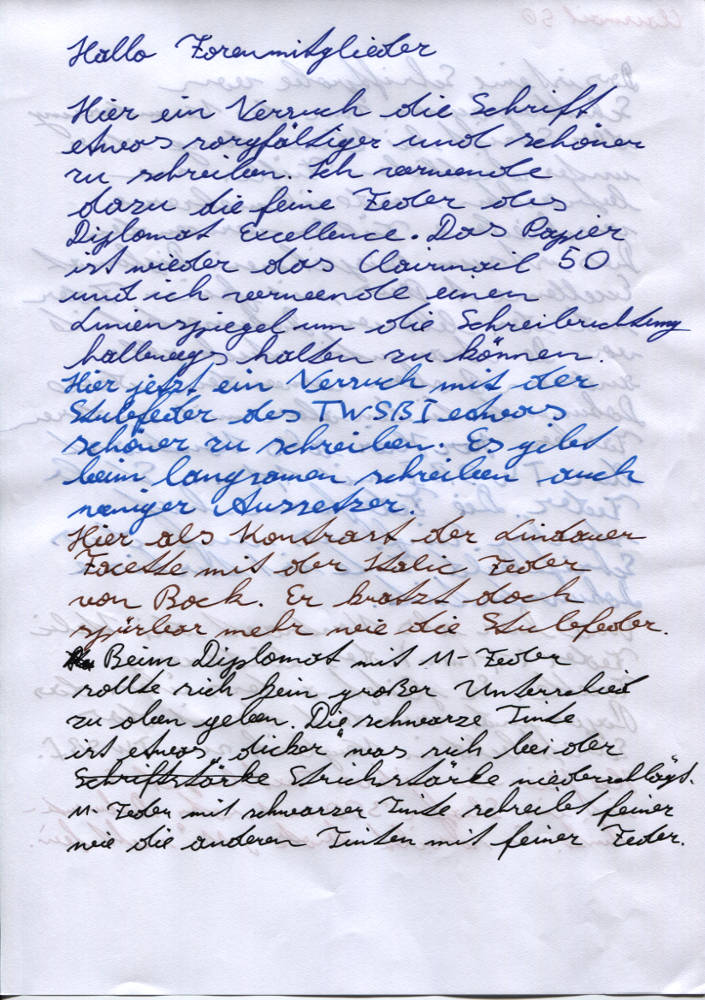 Hallo Forenmitglieder
Hier ein Versuch die Schrift
etwas sorgfältiger und schöner
zu schreiben. Ich verwende
dazu die feine Feder des
Diplomat Excellence. Das Papier
ist wieder das Clairmail 50
und ich verwende einen
Linienspiegel um die Schreibrichtung
halbwegs halten zu können.
Hier jetzt ein Versuch mit der
Stubfeder des TWSBI etwas
schöner zu schreiben. Es gibt
beim langsamen schreiben auch
weniger Aussetzer.
Hier als Kontrast der Lindauer
Facette mit der Italic Feder
von Bock. Er kratzt doch
spürbar mehr wie die Stubfeder.
Beim Diplomat mit M-Feder
sollte sich kein großer Unterschied
zu oben geben. Die schwarze Tinte
ist etwas "dicker" was sich bei der
Schriftstärke Strichstärke niederschlägt.
M-Feder mit schwarzer Tinte schreibt feiner
wie die anderen Tinten mit feiner Feder.
Clairmail 50